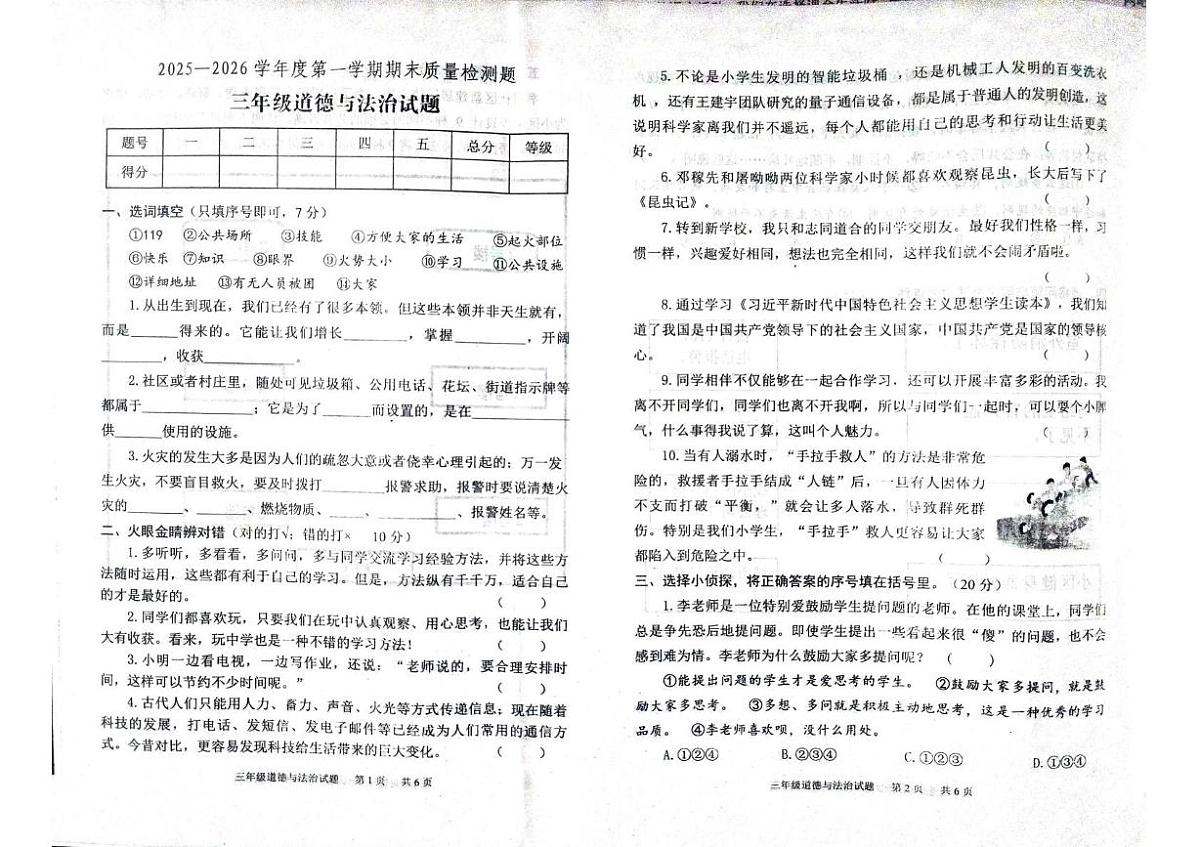 2025—2026 学年度第一学期期末质量检测题
三年级道德与法治试题
题号 一 二 三 四 五 总分 等级
得分
一、选词填空（只填序号即可，7 分）
①119 ②公共场所 ③技能 ④方便大家的生活 ⑤起火部位
⑥快乐 ⑦知识 ⑧眼界 ⑨火势大小 ⑩学习 ⑪公共设施
⑫详细地址 ⑬有无人员被困 ⑭大家
1.从出生到现在，我们已经有了很多本领。但这些本领并非天生就有，
而是______得来的。它能让我们增长________，掌握________，开阔
________，收获__________。
2.社区或者村庄里，随处可见垃圾箱、公用电话、花坛、街道指示牌等
都属于____________；它是为了______而设置的，是在__________
供______使用的设施。
3.火灾的发生大多是因为人们的疏忽大意或者侥幸心理引起的；万一发
生火灾，不要盲目救火，要及时拨打________报警求助，报警时要说清楚火
灾的_______、_______、燃烧物质、_____、__________、报警姓名等。
二、火眼金睛辨对错（对的打√；错的打× 10 分）
1.多听听，多看看，多问问，多与同学交流学习经验方法，并将这些方
法随时运用，这些都有利于自己的学习。但是，方法纵有千千万，适合自己
的才是最好的。 （ ）
2.同学们都喜欢玩，只要我们在玩中认真观察、用心思考，也能让我们
大有收获。看来，玩中学也是一种不错的学习方法！ （ ）
3.小明一边看电视，一边写作业，还说：“老师说的，要合理安排时
间，这样可以节约不少时间呢。” （ ）
4.古代人们只能用人力、畜力、声音、火光等方式传递信息；现在随着
科技的发展，打电话、发短信、发电子邮件等已经成为人们常用的通信方
式。今昔对比，更容易发现科技给生活带来的巨大变化。 （ ）
三年级道德与法治试题 第 1 页 共 6 页
5.不论是小学生发明的智能垃圾桶 ，还是机械工人发明的百变洗衣
机 ，还有王建宇团队研究的量子通信设备，都是属于普通人的发明创造，这
说明科学家离我们并不遥远，每个人都能用自己的思考和行动让生活更美
好。 （ ）
6.邓稼先和屠呦呦两位科学家小时候都喜欢观察昆虫，长大后写下了
《昆虫记》。 （ ）
7.转到新学校，我只和志同道合的同学交朋友。最好我们性格一样，习
惯一样，兴趣爱好相同，想法也完全相同，这样我们就不会闹矛盾啦。
（ ）
8.通过学习《习近平新时代中国特色社会主义思想学生读本》，我们知
道了我国是中国共产党领导下的社会主义国家，中国共产党是国家的领导核
心。 （ ）
9.同学相伴不仅能够在一起合作学习，还可以开展丰富多彩的活动。我
离不开同学们，同学们也离不开我啊，所以与同学们一起时，可以耍个小脾
气，什么事得我说了算，这叫个人魅力。 （ ）
10.当有人溺水时，“手拉手救人”的方法是非常危
险的，救援者手拉手结成“人链”后，一旦有人因体力
不支而打破“平衡，”就会让多人落水，导致群死群
伤。特别是我们小学生，“手拉手”救人更容易让大家
都陷入到危险之中。 （ ）
三、选择小侦探，将正确答案的序号填在括号里。（20 分）
1.李老师是一位特别爱鼓励学生提问题的老师。在他的课堂上，同学们
总是争先恐后地提问题。即使学生提出一些看起来很“傻”的问题，也不会
感到难为情。李老师为什么鼓励大家多提问呢？ （ ）
①能提出问题的学生才是爱思考的学生。 ②鼓励大家多提问，就是鼓
励大家多思考。 ③多想、多问就是积极主动地思考，这是一种优秀的学习
品质。 ④李老师喜欢呗，没什么用处。
A.①②④ B.②③④ C.①②③ D.①③④
三年级道德与法治试题 第 2 页 共 6 页